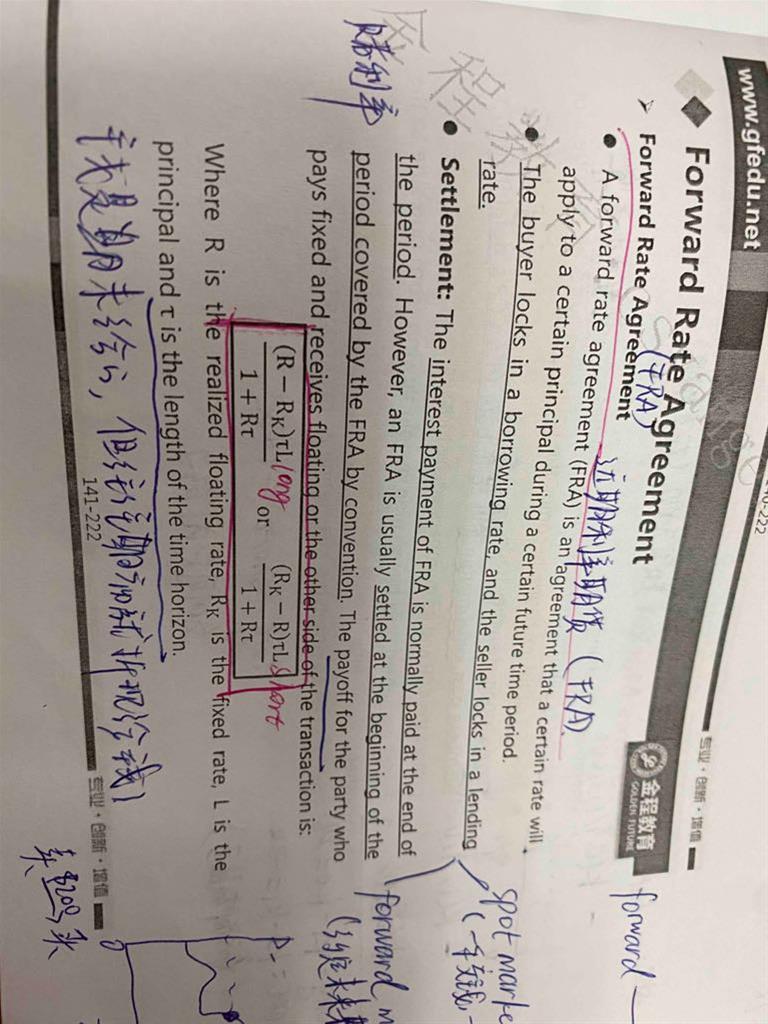 www.gfedu.net
140-222
专业·创新·增值
Forward Rate Agreement
金程教育
GOLDEN FUTURE
(FRA)
Forward Rate Agreement
远期利率期货 (FRA)
forward
A forward rate agreement (FRA) is an agreement that a certain rate will
apply to a certain principal during a certain future time period.
The buyer locks in a borrowing rate, and the seller locks in a lending
rate.
spot marke
Settlement: The interest payment of FRA is normally paid at the end of
the period. However, an FRA is usually settled at the beginning of the
forward m
赌利率
period covered by the FRA by convention. The payoff for the party who
pays fixed and receives floating or the other side of the transaction is:
(R − R_K)τL / 1 + Rτ long or (R_K − R)τL / 1 + Rτ short
Where R is the realized floating rate, R_K is the fixed rate, L is the
principal and τ is the length of the time horizon.
141-222
专业·创新·增值